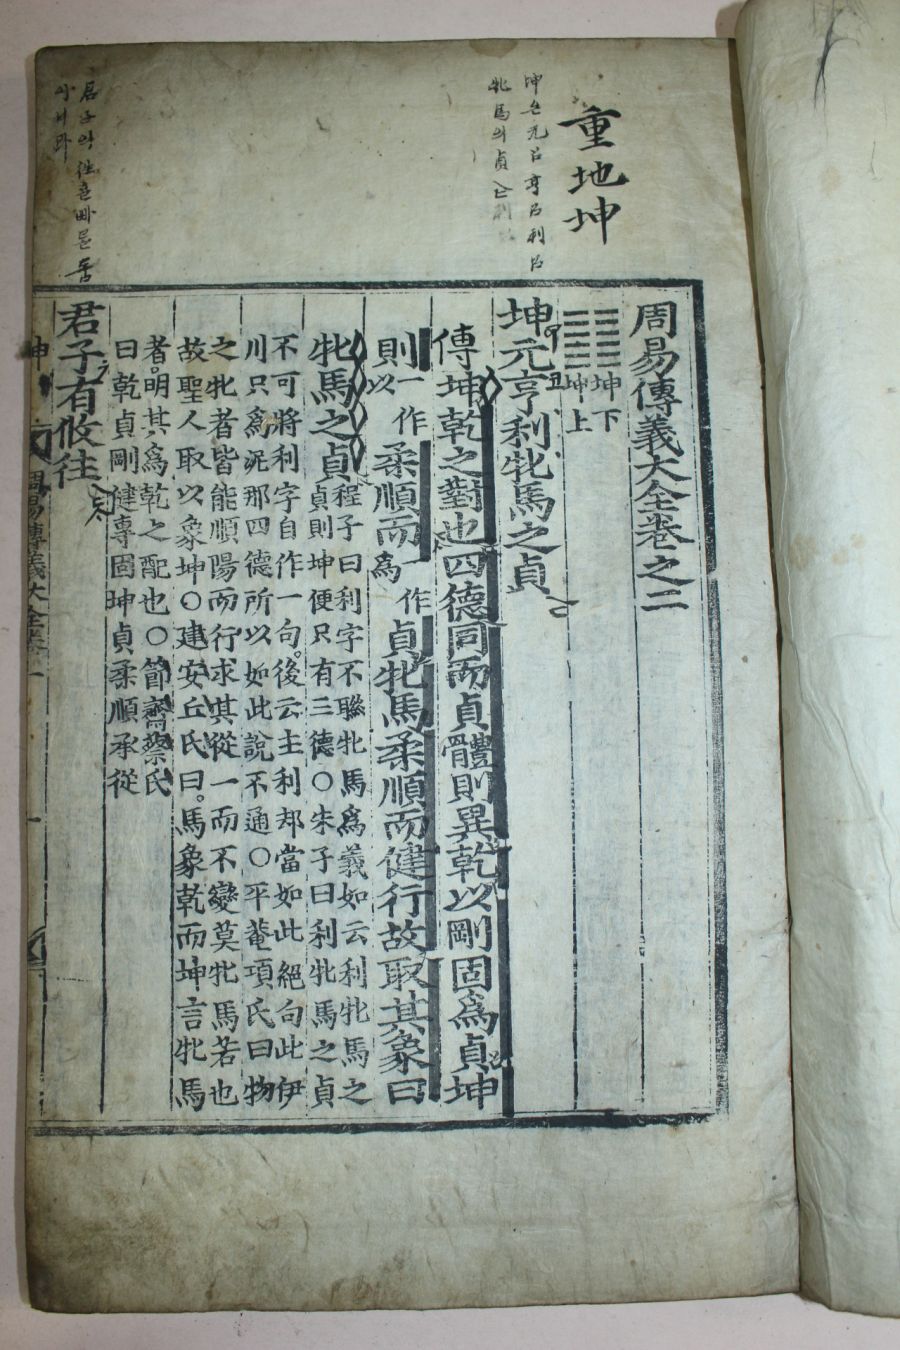 重地坤
坤은元고亨고利고
牝馬의貞
君子의
周易傳義大全卷之二
坤下
坤上
坤元亨利牝馬之貞
傳坤乾之對也四德同而貞體則異乾以剛固爲貞坤
則一作以柔順而一作爲貞牝馬柔順而健行故取其象曰
牝馬之貞程子曰利字不聯牝馬爲義如云利牝馬之
貞則坤便只有三德○朱子曰利牝馬之貞
不可將利字自作一句後云主利却當如此絕句此伊
川只爲泥那四德所以如此說不通○平菴項氏曰物
之牝者皆能順陽而行求其從一而不變莫牝馬若也
故聖人取以象坤○建安丘氏曰馬象乾而坤言牝馬
者明其爲乾之配也○節齋蔡氏
曰乾貞剛健專固坤貞柔順承從
君子有攸往
周易傳義大全卷